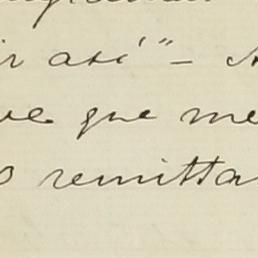 ir así" — 
ve que me
o remitta